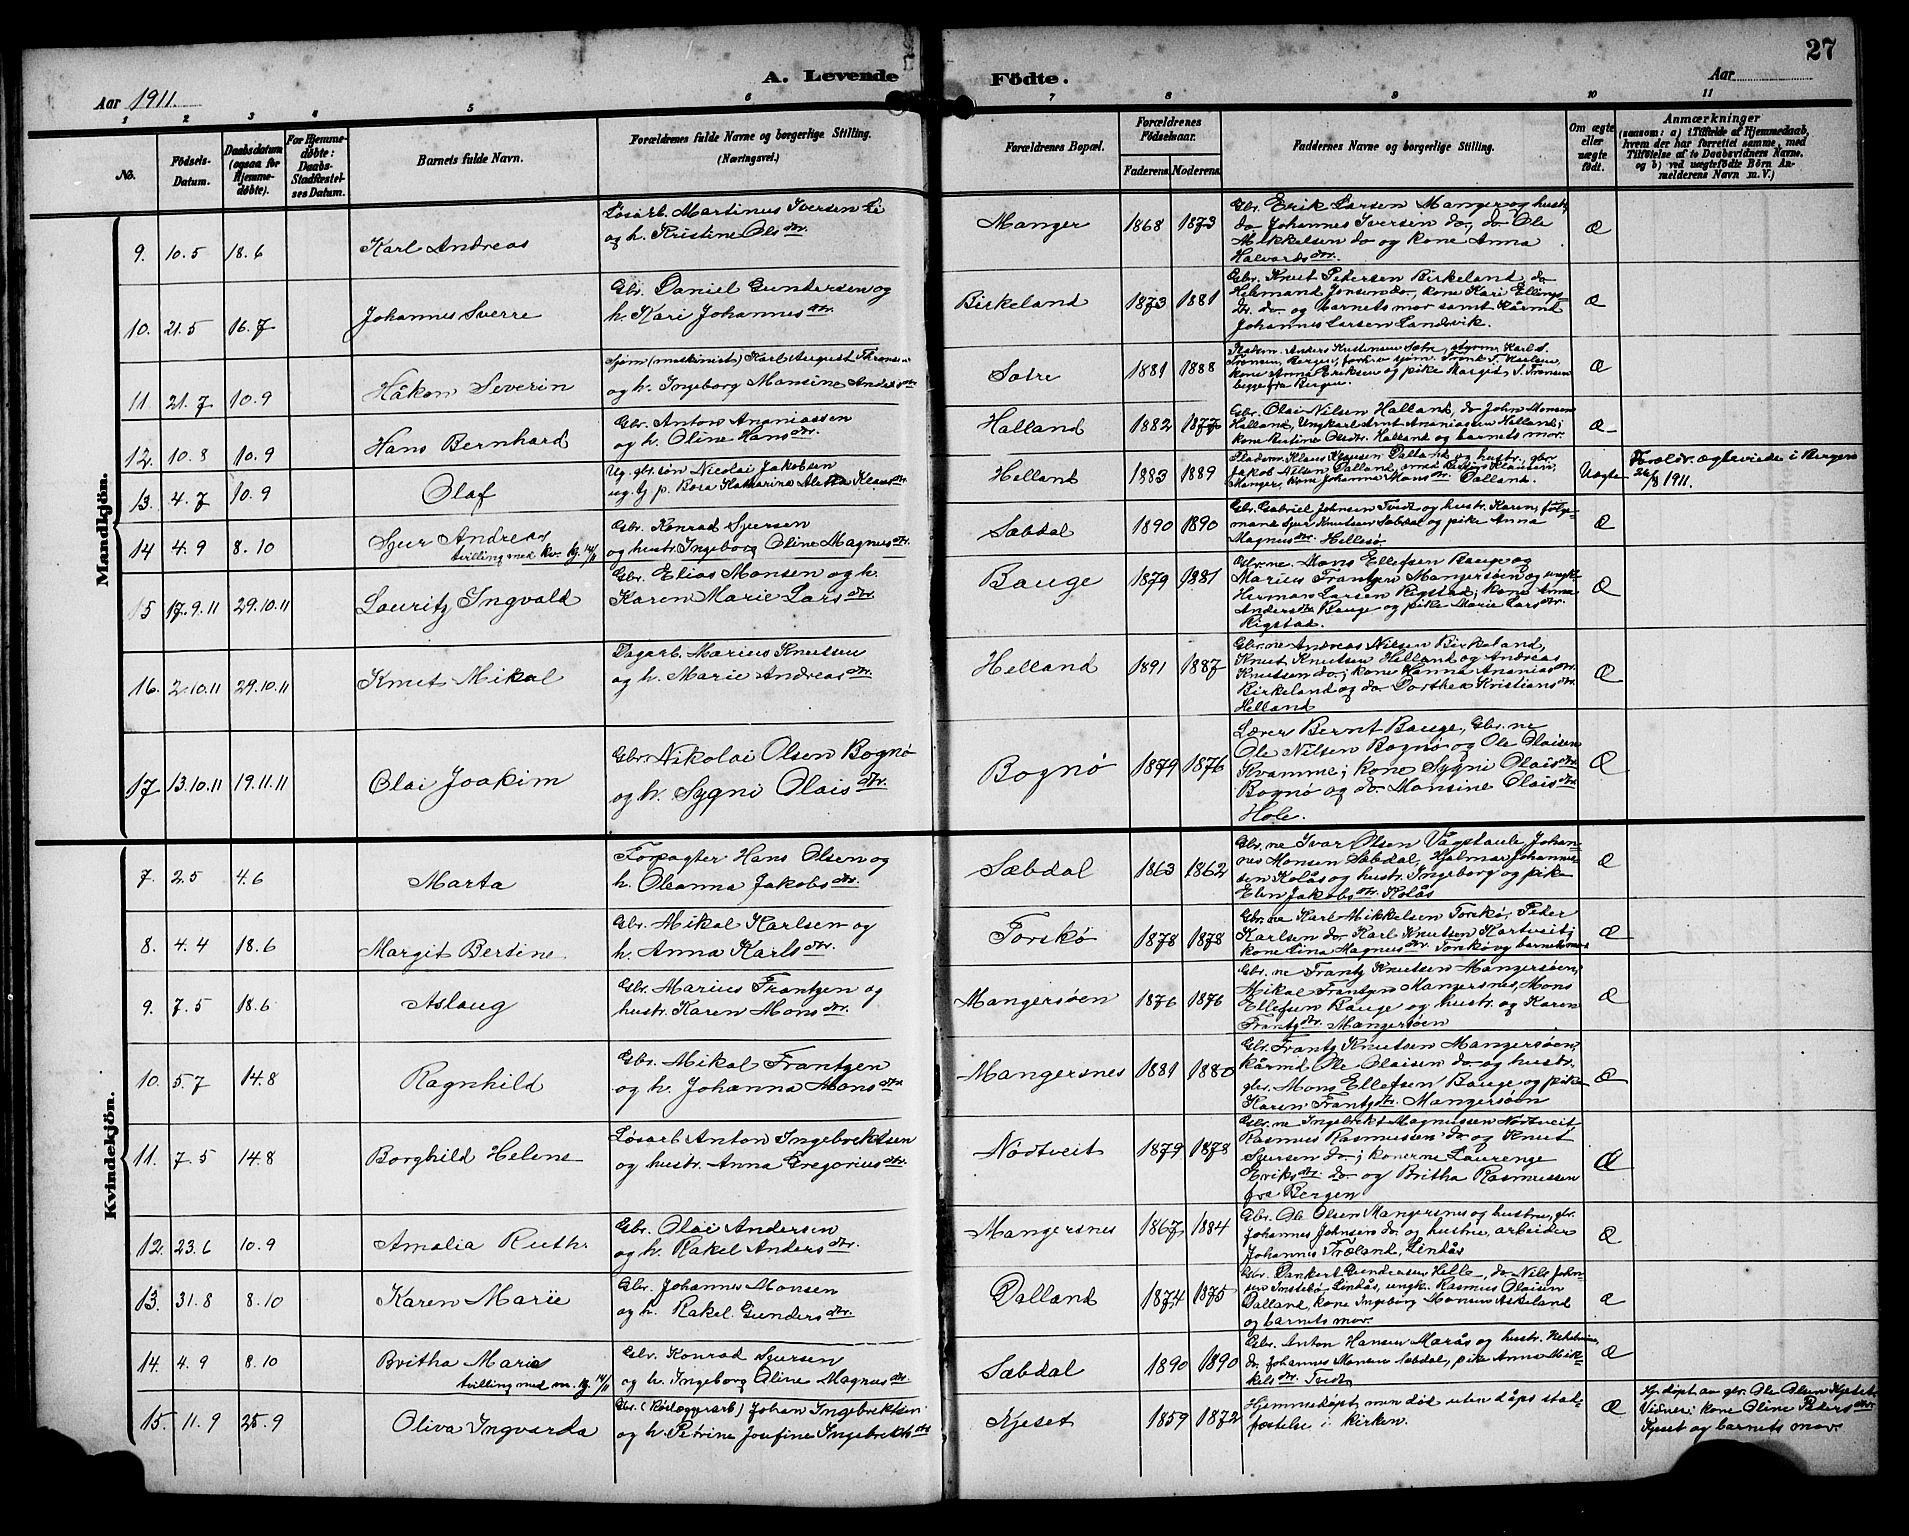 27
A. Levende Födte.
Aar 1911. Aar
1 2 3 4 5 6 7 8 9 10 11
No. Födsels-Datum. Daabsdatum (ogsaa for Hjemme-döbte). For Hjemme-döbte: Daabs-Stadfæstel-ses Datum. Barnets fulde Navn. Forældrenes fulde Navne og borgerlige Stilling. (Næringsvei.) Forældrenes Bopæl. Forældrenes Födselsaar. Faderens. Moderens. Faddernes Navne og borgerlige Stilling. Om ægte eller uægte födt. Anmærkninger (saasom: a) i Tilfælde af Hjemmedaab, hvem der har forrettet samme, med Tilföielse af to Daabsvidners Navne, og b) ved uægtefödte Börn An-melderens Navn m. V.)
Mandkjön.
9. 10.5 18.6 Karl Andreas
Løsarb. Martinus Iversen Li
og h. Kristine Olsdtr.
Manger 1868 1873
Gbr. Erik Larsen Manger og hustr.
do Johannes Iversen do, do Ole
Mikkelsen do og kone Anna
Halvordsdtr.
Æ
10. 21.5 16.7 Johannes Sverre
Gbr. Daniel Gundersen og
h. Kari Johannesdtr.
Birkeland 1873 1881
Gbr. Knut Petersen Birkeland, do
Helmand Jonsen do, kone Kari Ellings-
dtr. do og barnets mor samt Kårmd
Johannes Larsen Landsvik.
Æ
11 21.7 10.9 Håkon Severin
Sjøm (maskinist) Karl August Thronsen
og h. Ingeborg Monsine Andersdtr
Sætre 1881 1888
Pladsm. Anders Kristensen Sætre, styrm. Karl S.
Tronsen, Bergen, forh.v sjøm. Trond T. Karlsen,
kone Anna Eriksen og pike Margit S. Tronsen
begge fra Bergen.
Æ
12. 10.8 10.9 Hans Bernhard
Gbr. Anton Ananiassen
og h. Oline Hansdtr.
Halland 1882 1877
Gbr. Olai Nilsen Halland, do John Monsen
Halland, Ungkarl Arnt Ananiassen Halland;
kone Kristine Olsdtr. Halland og barnets mor.
Æ
13. 4.7 10.9 Olaf
Ug. gbr.søn Nicolai Jakobsen
ug. tj p. Bora Katharina Aletta Klausdtr
Helland 1883 1889
Pladsm. Klaus Knutsen Dalland og hustr., gbr.
Jakob Nilsen Dalland, smed Klausen,
Manger, kone Johanna Monsdtr. Dalland.
Uægte
Foreldr. ægteviede i Bergen
26/8 1911.
14 4.9 8.10 Sjur Andreas
tvilling med kv. kj. 14/11
Gbr. Konrad Sjursen
og hustr. Ingeborg Oline Magnusdtr.
Sæbdal 1890 1890
Gbr. Gabriel Johnsen Tvedt og hustr. Karen, følge-
mand Sjur Knutsen Sæbdal og pike Anna
Magnusdtr. Hellesø.
Æ
15 17.9.11 29.10.11 Lauritz Ingvald
Gbr. Elias Monsen og h.
Karen Marie Larsdtr.
Bauge 1879 1881
Gbr.ne. Mons Ellefsen Bauge og
Marius Frantzen Mangersøen og ungk.
Herman Larsen Rigstad; kone Anna
Andersdtr Bauge og pike Marie Larsdtr.
Rigstad.
Æ
16. 2.10.11 29.10.11 Knut Mikal
Dagarb. Marius Knutsen
og h. Marie Andreasdtr.
Helland 1891 1887
Gbr.ne Andreas Nilsen Birkeland,
Knut Knutsen Helland og Andreas
Knutsen do.; kone Hanna Ananiasdtr.
Birkeland og do. Dorthea Kristiansdtr.
Helland
Æ
17 13.10.11 19.11.11 Olai Joakim
Gbr. Nikolai Olsen Bognø
og h. Sygni Olaisdtr.
Bognø 1879 1876
Lærer Bernt Bauge, Gbr. ne
Ole Nilsen Bognø og Ole Olaisen
Kvamme; kone Sygni Olaisdtr.
Bognø og do. Monsine Olaisdtr.
Hole.
Æ
Kvindekjön.
7. 2.5 4.6 Marta
Forpagter Hans Olsen og
h. Oleanna Jakobsdtr.
Sæbdal 1863 1862
Gbr. ne Ivar Olsen Vågstaule, Johan-
nes Monsen Sæbdal, Hjalmar Johannes-
sen Kolås og hustr. Ingeborg og pike
Elen Jakobsdtr. Kolås
Æ
8. 4.4 18.6 Margit Bertine
Gbr. Mikal Karlsen og
h. Anna Karlsdtr.
Torskø 1878 1878
Gbr. ne Karl Mikkelsen Torskø, Peder
Karlsen do. Karl Knutsen Hartveit;
kone Lina Magnusdtr. Torskø og barnets mor
Æ
9. 7.5 18.6 Aslaug
Gbr. Marius Frantzen og
hustr. Karen Monsdtr.
Mangersøen 1876 1876
Gbr. ne Frantz Knutsen Mangersøen;
Mikal Frantzen Mangersnes, Mons
Ellefsen Bauge og hustr. og Karen
Frantzdtr. Mangersøen
Æ
10. 5.7 14.8 Ragnhild
Gbr. Mikal Frantzen
og h. Johanna Monsdtr
Mangersnes 1881 1880
Gbr. Frantz Knutsen Mangersøen,
kårmd Ole Olaisen do. og hustr.
gbr. Mons Ellefsen Bauge og pike
Karen Frantzdtr. Mangersøen
Æ
11. 7.5 14.8 Borghild Helene
Løsarb Anton Ingebrektsen
og hustr. Anna Gregoriusdtr.
Nødtveit 1879 1878
Gbr. ne Ingebrikt Magnussen Nødtveit
Rasmus Rasmussen do. og Knut
Sjursen do.; konerne Laurenze
Eriksdtr. do. og Britha Rasmussen
fra Bergen
Æ
12. 23.6 10.9 Amalia Ruth.
Gbr. Olai Andersen
og h. Rakel Andersdtr.
Mangersnes 1867 1884
Gbr. Ole Olsen Mangersnes og hustru, gbr.
Johannes Johnsen do. og hustru, arbeider
Johannes Træland, Lindås
Æ
13. 31.8 8.10 Karen Marie
Gbr. Johannes Monsen
og h. Rakel Gundersdtr.
Dalland 1874 1875
Gbr. Dankert Gundersen Hille, do. Nils John-
sen Instebø, Lindås, ungk. Rasmus Olaisen
Dalland, kone Ingeborg Monsen Askeland
og barnets mor.
Æ
14. 4.9 8.10 Britha Marie
tvilling med m. kj. 14/11
Gbr. Konrad Sjursen
og h. Ingeborg Oline Magnusdtr.
Sæbdal 1890 1890
Gbr. Anton Hansen Marås og hustr.
do. Johannes Monsen Sæbdal, pike Anna Mik-
kelsdtr. Tvedt.
Æ
15. 11.9 25.9 Oliva Ingvarda
Gbr. (Rørlæggerarb) Johan Ingebrektsen
og h. Petrine Josefine Ingebrektsdtr
Kjeset 1859 1872
Hjemmedøpt, men død uten dåps stad-
fæstelse i kirken.
Æ
Hj. døpt av gbr. Ole Olsen Kjeset.
Vidner: kone Oline Pedersdtr.
Kjeset og barnets mor.